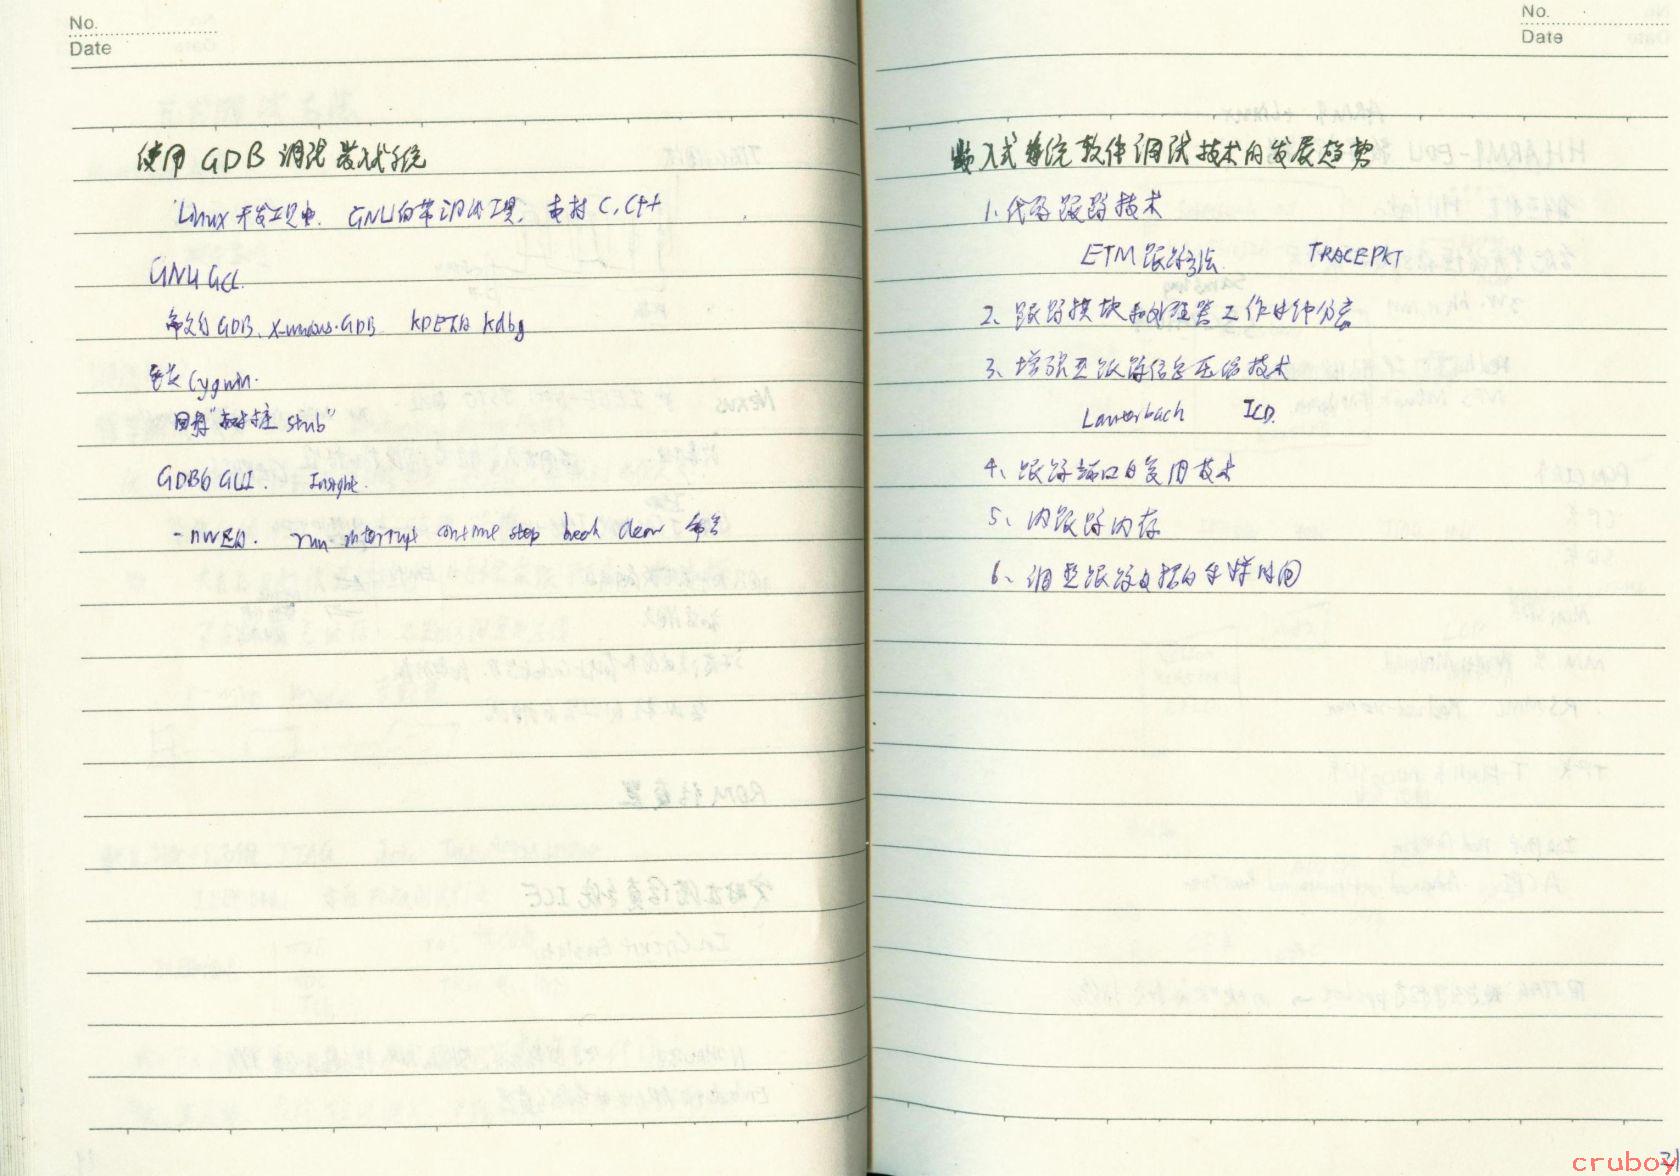 No.
Date
使用 GDB 调试嵌入式系统
Linux 开发工具中. GNU的带调试工具. 支持 C, C++
GNU GCC.
命令行 GDB、X-windows·GDB KDE下的 kdbg
安装 Cygwin.
"插桩 stub"
GDB的 GUI. Insight.
-nw run interrupt continue step break clear 命令
No.
Date
嵌入式系统软件调试技术的发展趋势
1、代码跟踪技术
ETM 跟踪 TRACEPKT
2、跟踪模块和处理器工作时钟分离
3、增强型跟踪信息压缩技术
Lauterbach ICD.
4、跟踪端口的复用技术
5、内跟踪内存
6、调整跟踪数据的采样时间
cruboy